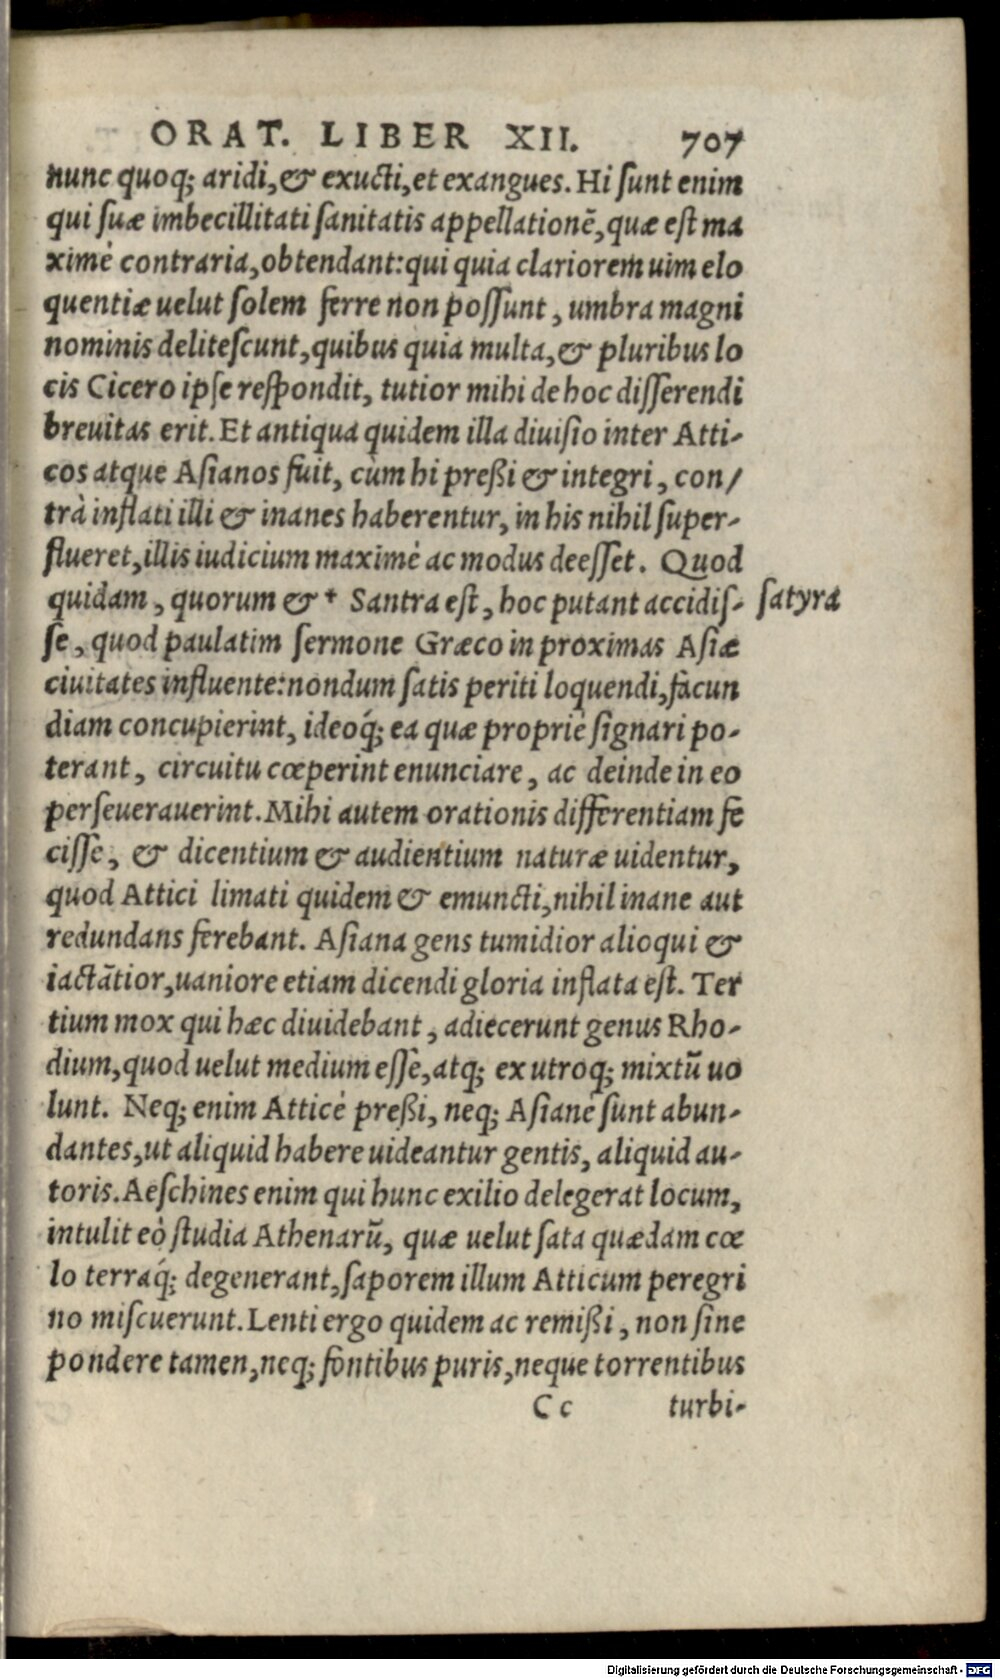 ORAT. LIBER XII. 707
nunc quoq; aridi, & exucti, et exangues. Hi sunt enim
qui suæ imbecillitati sanitatis appellationẽ, quæ est ma
ximè contraria, obtendant: qui quia clariorem uim elo
quentiæ uelut solem ferre non possunt, umbra magni
nominis delitescunt, quibus quia multa, & pluribus lo
cis Cicero ipse respondit, tutior mihi de hoc disserendi
breuitas erit. Et antiqua quidem illa diuisio inter Atti-
cos atque Asianos fuit, cùm hi preßi & integri, con/
trà inflati illi & inanes haberentur, in his nihil super-
flueret, illis iudicium maximè ac modus deesset. Quod
quidam, quorum & † Santra est, hoc putant accidis- satyra
se, quod paulatim sermone Græco in proximas Asiæ
ciuitates influente: nondum satis periti loquendi, facun
diam concupierint, ideoq́; ea quæ propriè signari po-
terant, circuitu cœperint enunciare, ac deinde in eo
perseuerauerint. Mihi autem orationis differentiam fe
cisse, & dicentium & audientium naturæ uidentur,
quod Attici limati quidem & emuncti, nihil inane aut
redundans ferebant. Asiana gens tumidior alioqui &
iactãtior, uaniore etiam dicendi gloria inflata est. Ter
tium mox qui hæc diuidebant, adiecerunt genus Rho-
dium, quod uelut medium esse, atq; ex utroq; mixtũ uo
lunt. Neq; enim Atticè preßi, neq; Asianè sunt abun-
dantes, ut aliquid habere uideantur gentis, aliquid au-
toris. Aeschines enim qui hunc exilio delegerat locum,
intulit eò studia Athenarũ, quæ uelut sata quædam cœ
lo terraq́; degenerant, saporem illum Atticum peregri
no miscuerunt. Lenti ergo quidem ac remißi, non sine
pondere tamen, neq; fontibus puris, neque torrentibus
Cc turbi-
Digitalisierung gefördert durch die Deutsche Forschungsgemeinschaft - DFG